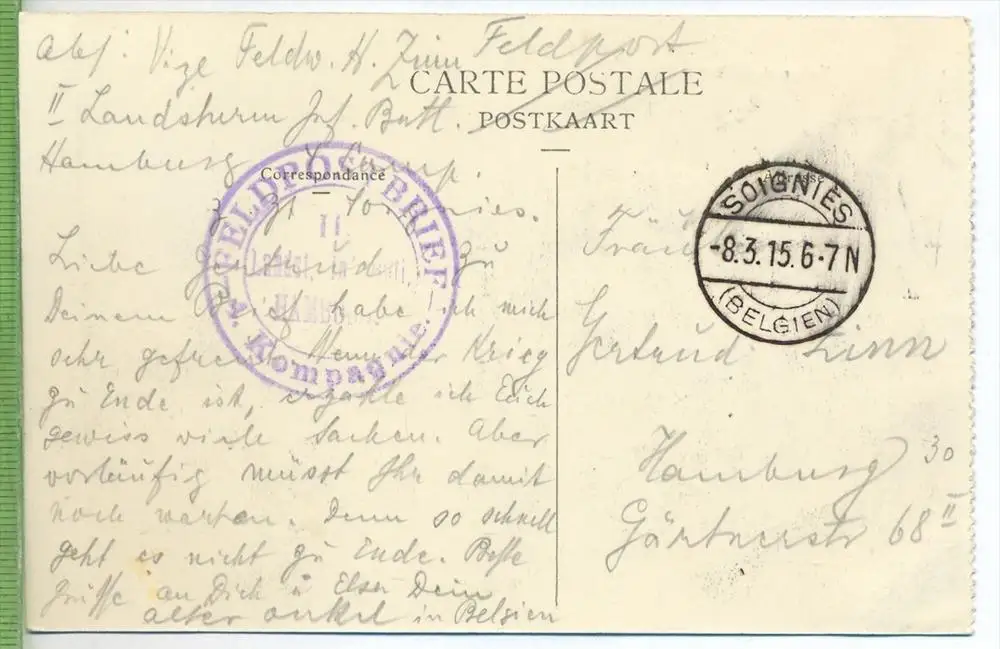 Abs: Vize Feldw. H. Zinn Feldpost
CARTE POSTALE
II Landsturm Inf. Batl.
POSTKAART
Hamburg 4 Comp.
Correspondance
Adresse
z. Zt. Soignies.
FELDPOSTBRIEF
II
HAMBURG
4. Kompagnie.
SOIGNIES
-8.3.15.6-7N
(BELGIEN)
Liebe Gertrud! Zu
Deinem Brief habe ich mich
sehr gefreut. Wenn der Krieg
zu Ende ist, erzähle ich Euch
gewiss viele Sachen. Aber
vorläufig müsst Ihr damit
noch warten. Denn so schnell
geht es nicht zu Ende. Beste
Grüsse an Dich u Elsa Dein
alter onkel in Belgien
Fräul
Gertrud Zinn
Hamburg 30
Gärtnerstr 68 II